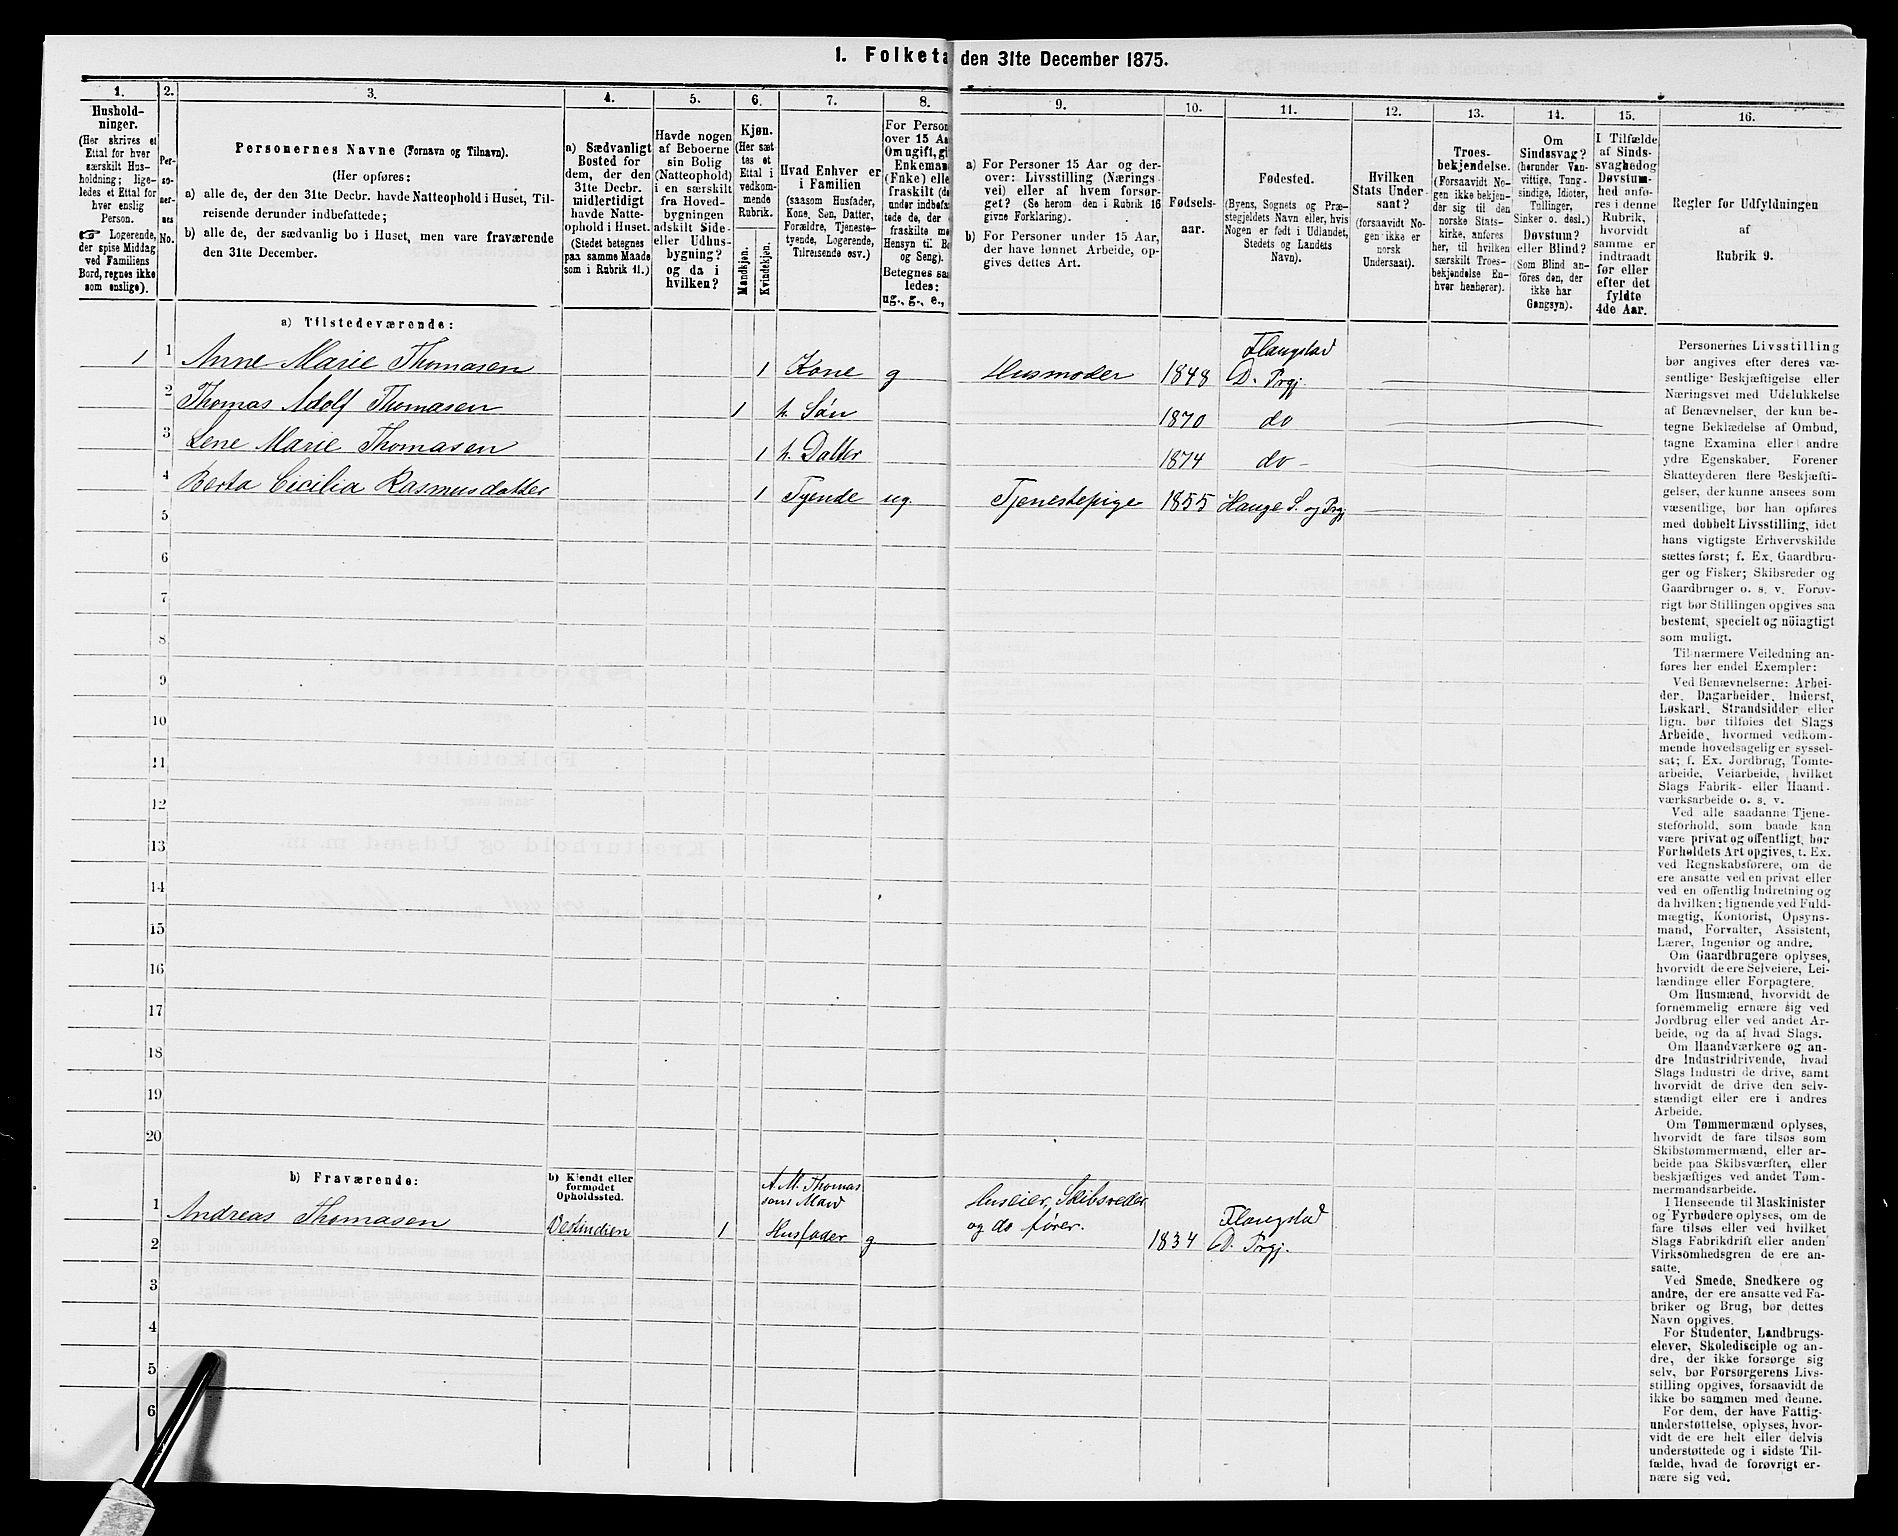 1. Folketa den 31te December 1875.
1.
Hushold-
ninger.
(Her skrives et
Ettal for hver
særskilt Hus-
holdning; lige-
ledes et Ettal for
hver enslig
Person.
Logerende,
der spise Middag
ved Familiens
Bord, regnes ikke
som enslige).
2.
Per-
so-
ner-
nes
No.
3.
Personernes Navne (Fornavn og Tilnavn).
(Her opføres:
a) alle de, der den 31te Decbr. havde Natteophold i Huset, Til-
reisende derunder indbefattede;
b) alle de, der sædvanlig bo i Huset, men vare fraværende
den 31te December.
4.
a) Sædvanligt
Bosted for
dem, der den
31te Decbr.
midlertidigt
havde Natte-
ophold i Huset.
(Stedet betegnes
paa samme Maade
som i Rubrik 11.)
5.
Havde nogen
af Beboerne
sin Bolig
(Natteophold)
i en særskilt
fra Hoved-
bygningen
adskilt Side-
eller Udhus-
bygning?
og da i
hvilken?
6.
Kjøn.
(Her sæt-
tes et
Ettal i
vedkom-
mende
Rubrik.
Mandkjøn.
Kvindekjøn.
7.
Hvad Enhver er
i Familien
(saasom Husfader,
Kone, Søn, Datter,
Forældre, Tjeneste-
tyende, Logerende,
Tilreisende osv.)
8.
For Person
over 15 Aa
Om ugift, gi
Enkeman
(Enke) elle
fraskilt (de
under indbefat
tede de, der
fraskilte me
Hensyn til Bo
og Seng).
Betegnes saa
ledes:
ug., g., e.,
9.
a) For Personer 15 Aar og der-
over: Livsstilling (Nærings-
vei) eller af hvem forsør-
get? (Se herom den i Rubrik 16
givne Forklaring).
b) For Personer under 15 Aar,
der have lønnet Arbeide, op-
gives dettes Art.
10.
Fødsels-
aar.
11.
Fødested.
(Byens, Sognets og Præ-
stegjeldets Navn eller, hvis
Nogen er født i Udlandet,
Stedets og Landets
Navn).
12.
Hvilken
Stats Under-
saat?
(forsaavidt No-
gen ikke er
norsk
Undersaat).
13.
Troes-
bekjendelse.
(Forsaavidt No-
gen ikke bekjen-
der sig til den
norske Stats-
kirke, anføres
her, til hvilken
særskilt Troes-
bekjendelse En-
hver henhører).
14.
Om
Sindssvag?
(herunder Van-
vittige, Tung-
sindige, Idioter,
Tullinger,
Sinker o. desl.)
Døvstum?
eller Blind?
(Som Blind an-
føres den, der
ikke har
Gangsyn).
15.
I Tilfælde
af Sinds-
svaghed og
Døvstum-
hed anfø-
res i denne
Rubrik,
hvorvidt
samme er
indtraadt
før eller
efter det
fyldte
4de Aar.
16.
Regler for Udfyldningen
af
Rubrik 9.
a) Tilstedeværende:
1 1 Anne Marie Thomasen 1 Kone g Husmoder 1848 Flangstad D. Prgj.
2 Thomas Adolf Thomasen 1 h. Søn 1870 do
3 Lene Marie Thomasen 1 h. Datter 1874 do -
4 Berta Cicilia Rasmusdatter 1 Tyende ug. Tjenestepige 1855 Hauge S. og Prgj
5
6
7
8
9
10
11
12
13
14
15
16
17
18
19
20
b) Fraværende:
b) Kjendt eller
formodet
Opholdssted.
A. M. Thomas
sens Mand
1 Andreas Thomasen Vestindien 1 Husfader g Huseier, Skibsreder
og do fører. 1834 Flangstad
D. Prgj.
2
3
4
5
6
Personernes Livsstilling
bør angives efter deres væ-
sentlige Beskjæftigelse eller
Næringsvei med Udelukkelse
af Benævnelser, der kun be-
tegne Beklædelse af Ombud,
tagne Examina eller andre
ydre Egenskaber. Forener
Skatteyderen flere Beskjæfti-
gelser, der kunne ansees som
væsentlige, bør han opføres
med dobbelt Livsstilling, idet
hans vigtigste Erhvervskilde
sættes først; f. Ex. Gaardbru-
ger og Fisker; Skibsreder og
Gaardbruger o. s. v. Forøv-
rigt bør Stillingen opgives saa
bestemt, specielt og nøiagtigt
som muligt.
Til nærmere Veiledning an-
føres her endel Exempler:
Ved Benævnelserne: Arbei-
der, Dagarbeider, Inderst,
Løskarl, Strandsidder eller
lign. bør tilføies det Slags
Arbeide, hvormed vedkom-
mende hovedsagelig er syssel-
sat; f. Ex. Jordbrug, Tomte-
arbeide, Veiarbeide, hvilket
Slags Fabrik- eller Haand-
værksarbeide o. s. v.
Ved alle saadanne Tjene-
steforhold, som baade kan
være privat og offentligt, bør
Forholdets Art opgives, t. Ex.
ved Regnskabsførere, om de
ere ansatte ved en privat eller
ved en offentlig Indretning og
da hvilken; lignende ved Fuld-
mægtig, Kontorist, Opsyns-
mand, Forvalter, Assistent,
Lærer, Ingeniør og andre.
Om Gaardbrugere oplyses,
hvorvidt de ere Selveiere, Lei-
lændinge eller Forpagtere.
Om Husmænd, hvorvidt de
fornemmelig ernære sig ved
Jordbrug eller ved andet Ar-
beide, og da af hvad Slags.
Om Haandværkere og an-
dre Industridrivende, hvad
Slags Industri de drive, samt
hvorvidt de drive den selv-
stændigt eller ere i andres
Arbeide.
Om Tømmermænd oplyses,
hvorvidt de fare tilsøs som
Skibstømmermænd, eller ar-
beide paa Skibsværfter, eller
beskjæftiges ved andet Tøm-
mermandsarbeide.
I Henseende til Maskinister
og Fyrbødere oplyses, om de
fare tilsøs eller ved hvilket
Slags Fabrikdrift eller anden
Virksomhedsgren de ere an-
satte.
Ved Smede, Snedkere og
andre, der ere ansatte ved Fa-
briker og Brug, bør dettes
Navn opgives.
For Studenter, Landbrugs-
elever, Skoledisciple og an-
dre, der ikke forsørge sig
selv, bør Forsørgerens Livs-
stilling opgives, forsaavidt de
ikke bo sammen med denne.
For dem, der have Fattig-
understøttelse, oplyses, hvor-
vidt de ere helt eller delvis
understøttede og i sidste Til-
fælde, hvad de forøvrigt er-
nære sig ved.